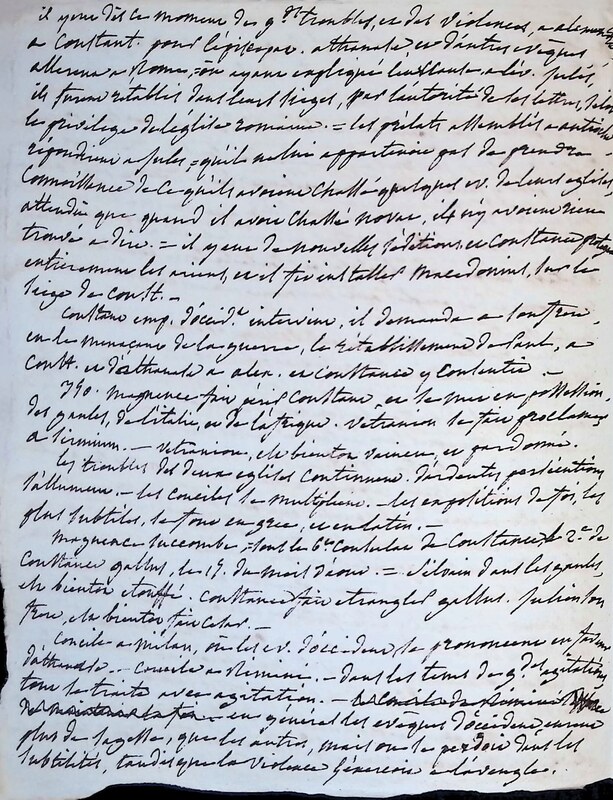 il y eut dès ce moment de gds troubles, et des violences, a alexandrie
a Constant. pour l'épiscopat. athanase et d'autres evêques
allerent a Rome, on ayant expliqué leur cause a l'év. Jules
ils furent rétablis dans leurs sièges, par l'autorité de ses lettres,
le privilege de l'église romaine. = les prélats assemblés a antioche
repondirent a Jules, = qu'il ne lui appartenoit pas de prendre
connoissance de ce qu'ils avoient chassé quelques ev. de leurs églises
attendu que quand il avoit chassé novat, ils n'y avoient rien
trouvé a dire. = il y eut de nouvelles séditions, et Constance protegea
entierement les ariens, et il fit installer Macedonius, sur le
siege de Const. –
Constant emp. d'occidt. intervint, il demanda a son frere,
en le menaçant de la guerre, le rétablissement de Paul, a
Const. et d'athanase a alex. et Constance y consentit –
350. magnence fait périr Constant, et se met en possession
des gaules, de l'italie, et de l'afrique. vetranion se fait proclamer
a Sirmium. – vetranion, est bientôt vaincu, et pardonné.
les troubles des deux eglises continuent. d'ardentes persécutions
s'allument – les conciles se multiplient. – les expositions de foi, les
plus subtiles, se font en grec, et en latin. –
magnence succombe = sous le 6e. Consulat de Constance, le 2e. de
Constance gallus, le 15. du mois d'aout = Silvain dans les gaules,
est bientôt étouffé. Constance fait etrangler gallus. Julien son
frere, est bientôt fait César. –
Concile a Milan, où les ev. d'occident se prononcent en faveur
d'athanase. – Concile a Rimini. – dans les tems de gdes agitations
tout se traite avec agitation. –
en général les eveques d'occident eurent
plus de sagesse, que les autres, mais on se perdoit dans les
subtilités, tandis que la violence s'exerçoit a l'aveugle.